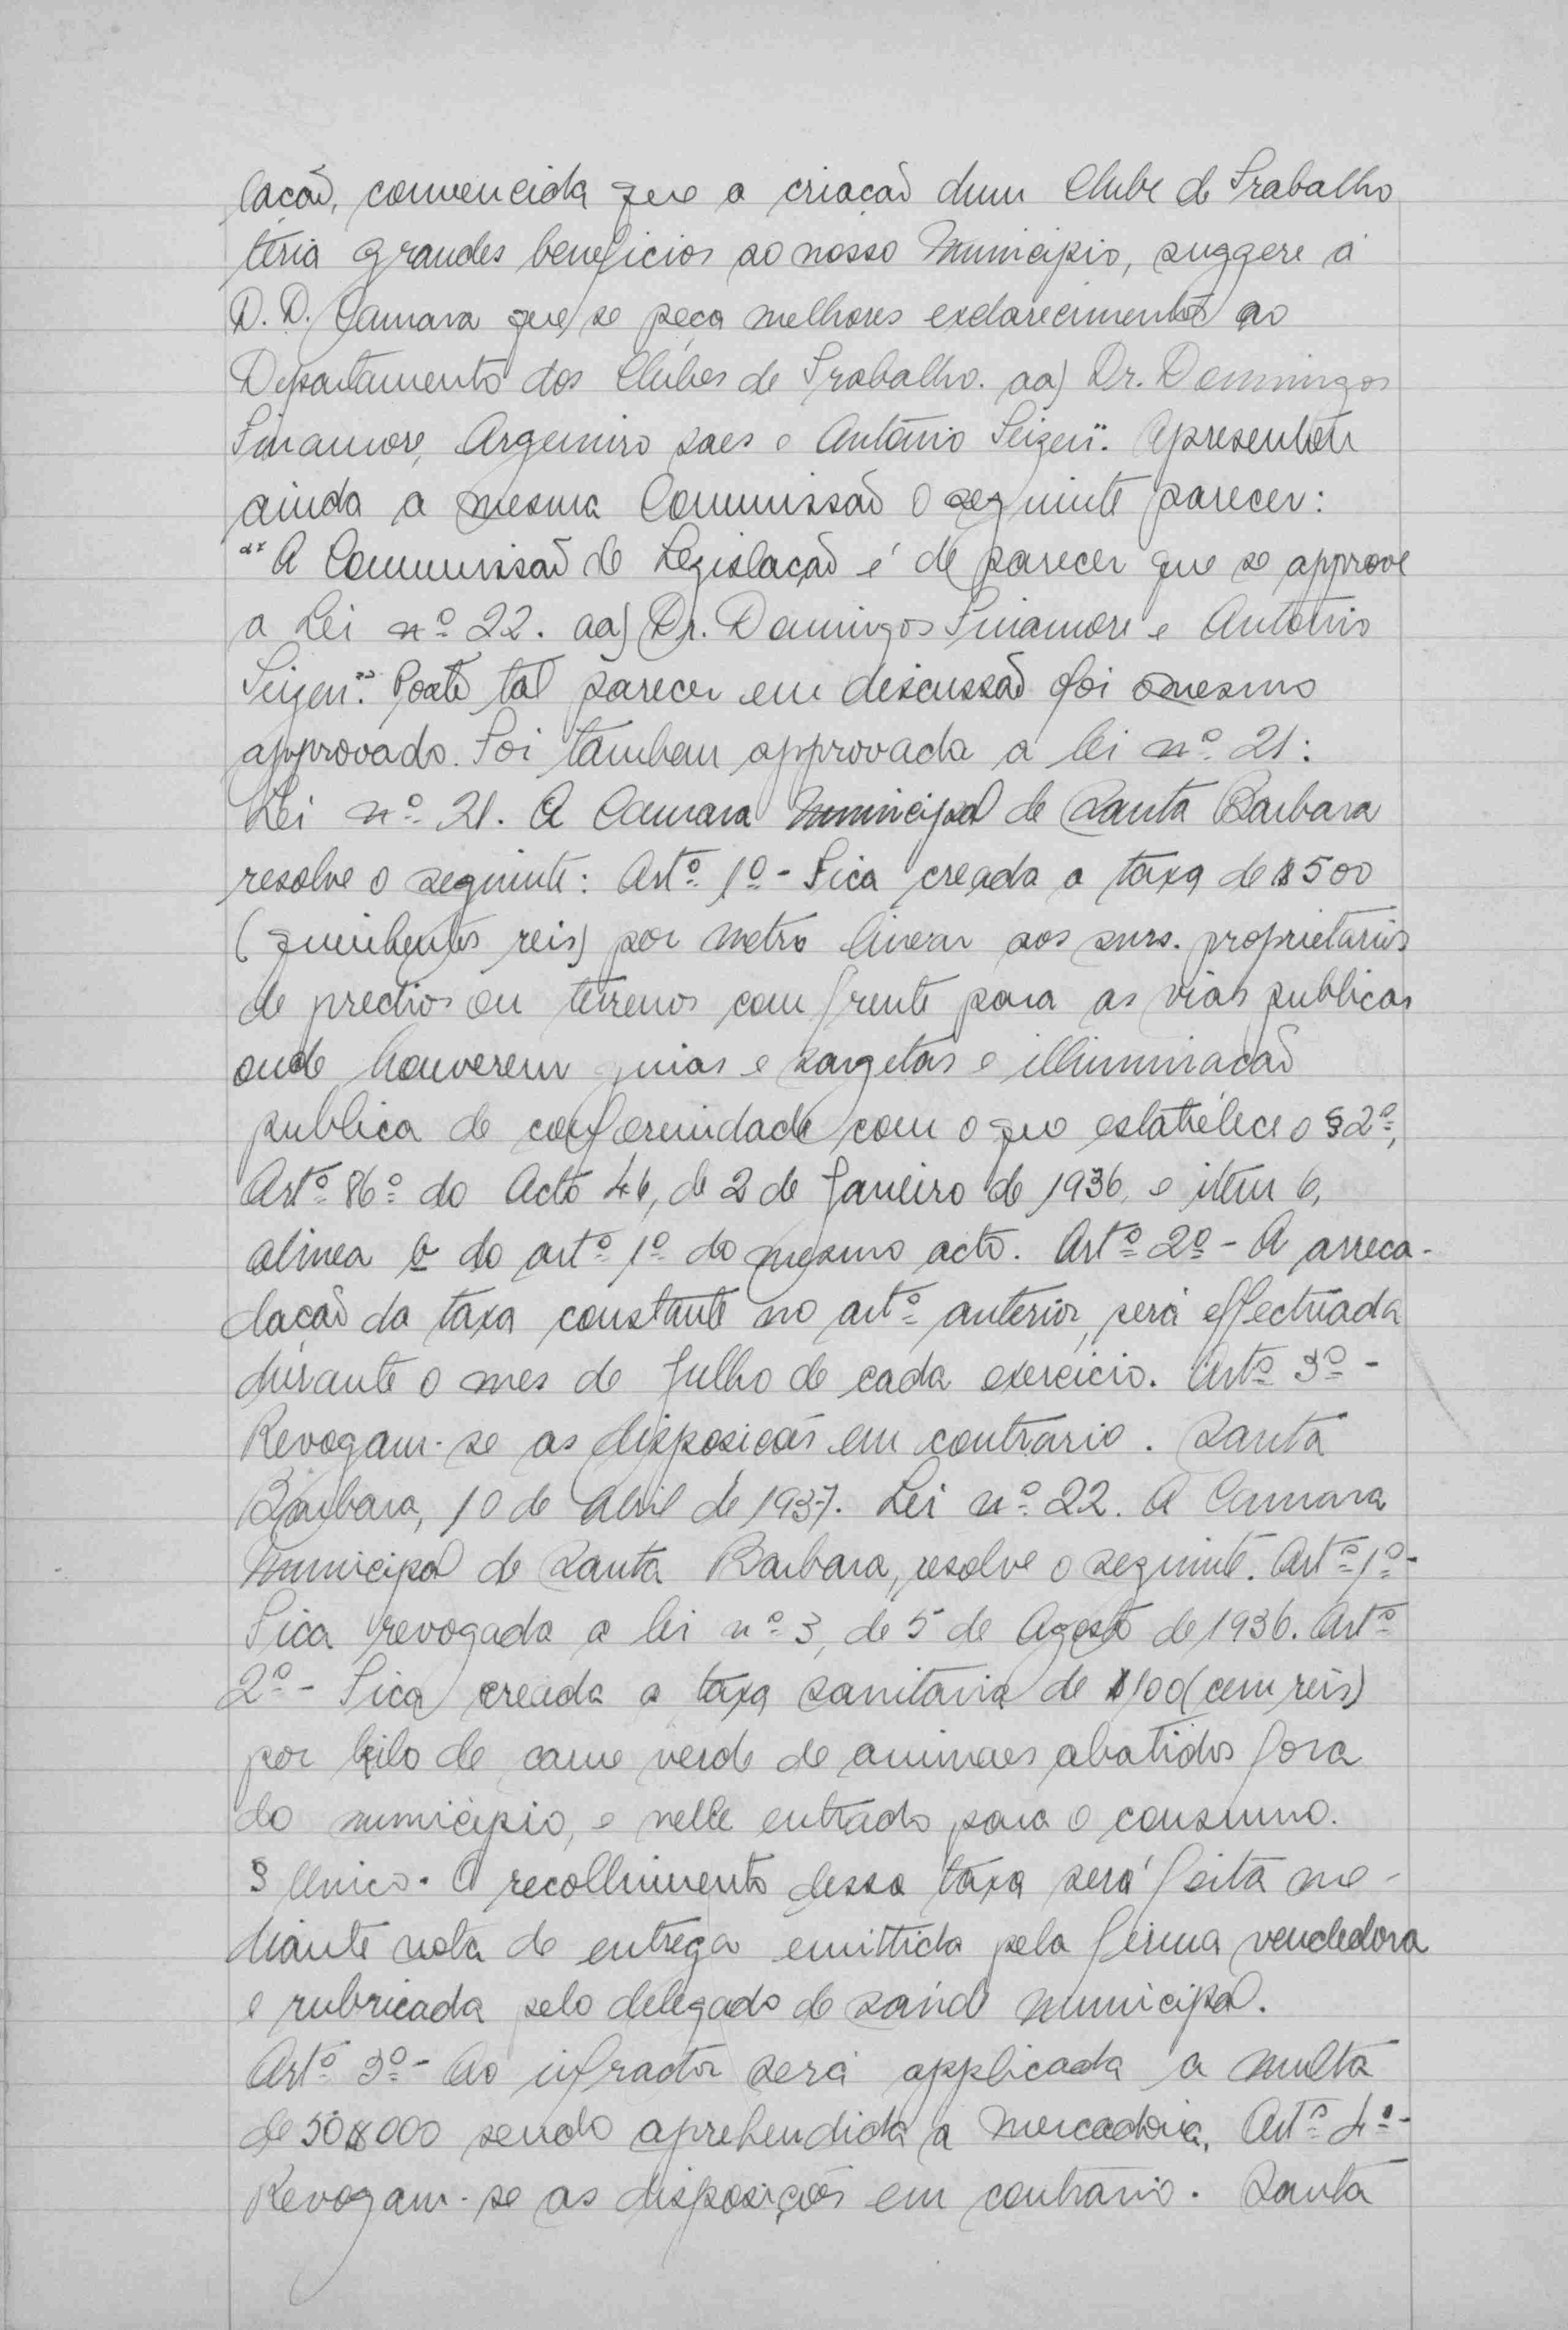 lação, convencida que a criação dum Clube de Trabalho
teria grandes beneficios ao nosso Municipio, suggere á
D. D. Camara que se peça melhores exclarecimentos ao
Departamento dos Clubes de Trabalho. aa) Dr. Domingos
Finamore, Argemiro Paes e Antonio Seigen". Apresentou
ainda a mesma Commissão o seguinte parecer:
"A Commissão de Legislação é de parecer que se approve
a Lei nº 22. aa) Dr. Domingos Finamore e Antonio
Seigen". Posto tal parecer em discussão foi o mesmo
approvado. Foi tambem approvada a lei nº 21:
Lei nº 21. A Camara Municipal de Santa Barbara
resolve o seguinte: Artº 1º - Fica creada a taxa de $500
(quinhentos reis) por metro linear aos snrs. proprietarios
de predios ou terrenos com frente para as vias publicas
onde houverem guias e sargetas e illuminação
publica de conformidade com o que estabélece o § 2º,
Artº 86º do Acto 46, de 2 de Janeiro de 1936, e item 6,
alinea b do artº 1º do mesmo acto. Artº 2º - A arreca-
dação da taxa constante no artº anterior, será effectuada
durante o mes de Julho de cada exercicio. Artº 3º -
Revogam-se as disposições em contrario. Santa
Barbara, 10 de Abril de 1937. Lei nº 22. A Camara
Municipal de Santa Barbara, resolve o seguinte. Artº 1º -
Fica revogada a lei nº 3, de 5 de Agosto de 1936. Artº
2º - Fica creada a taxa sanitaria de $100 (cem reis)
por kilo de carne verde de animaes abatidos fora
do municipio, e nelle entrado para o consumo.
§ Unico. O recolhimento dessa taxa será feita me-
diante nota de entrega emittida pela firma vendedora
e rubricada pelo delegado de saúde municipal.
Artº 3º - Ao infractor será applicada a multa
de 50$000 sendo aprehendida a mercadoria. Artº 4º -
Revogam-se as disposições em contrario. Santa